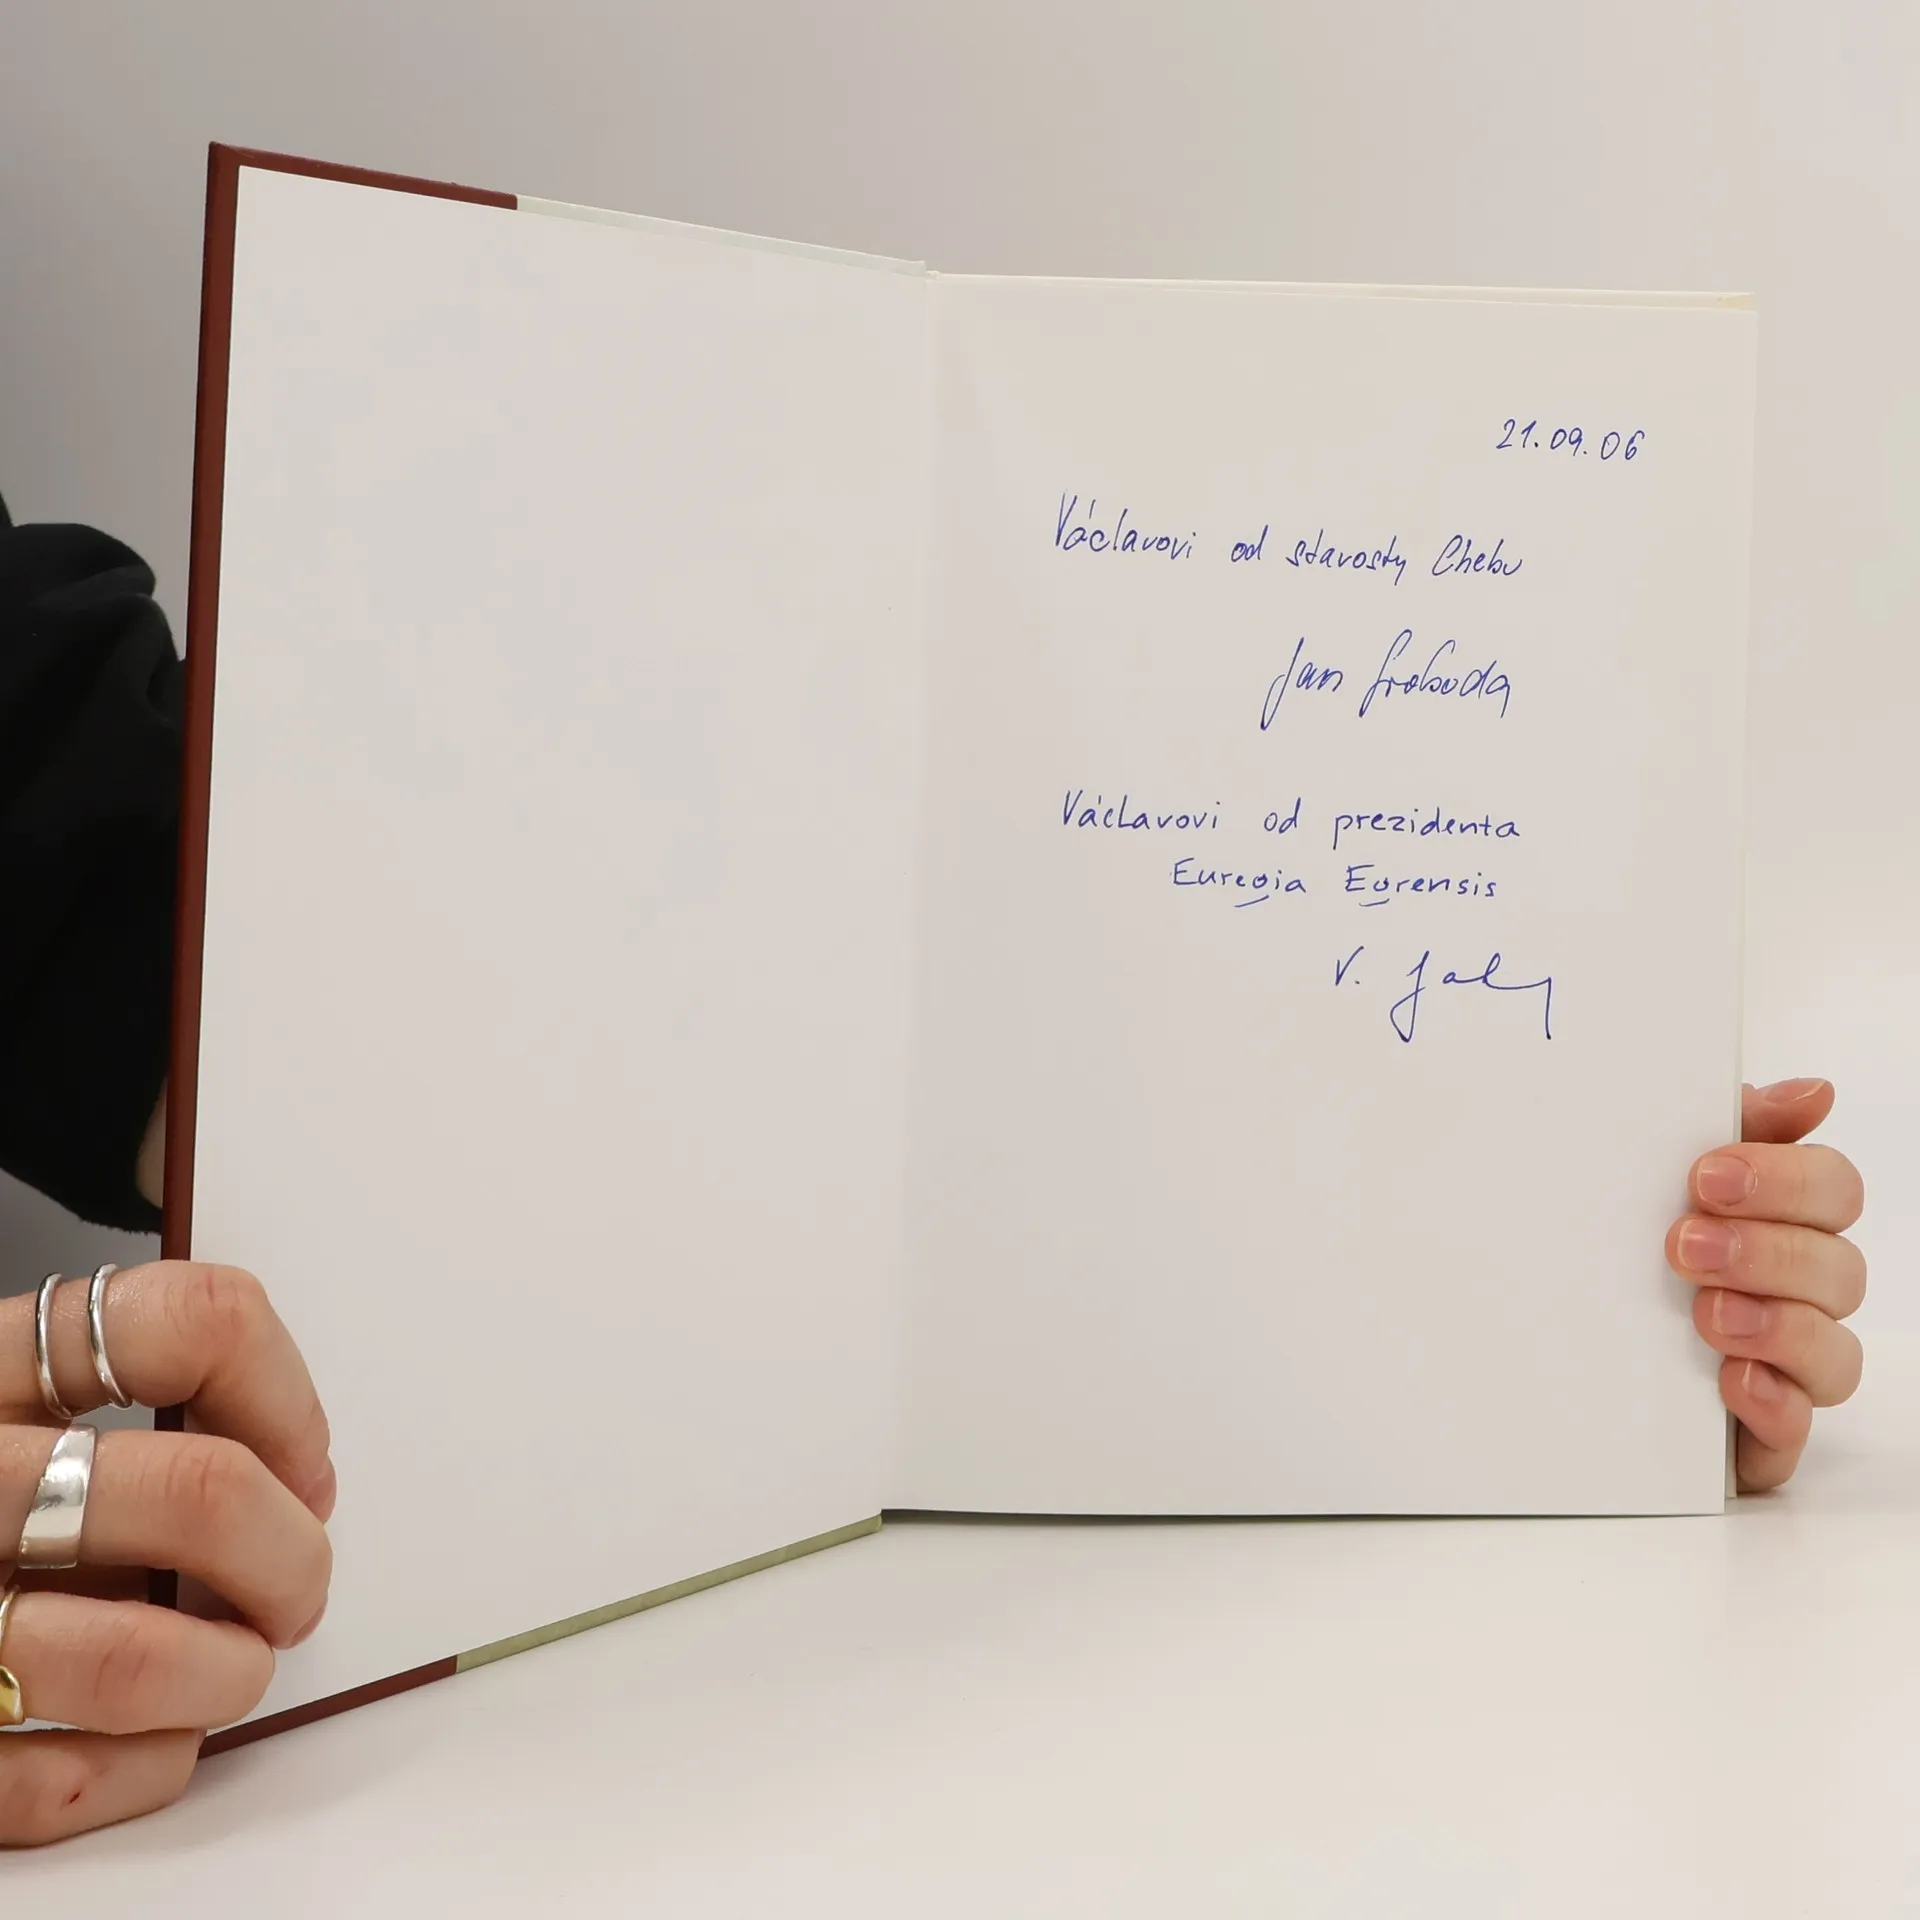 21.09.06
Václavovi od starosty Chebu
Jan Svoboda
Václavovi od prezidenta
Euregia Egrensis
V.